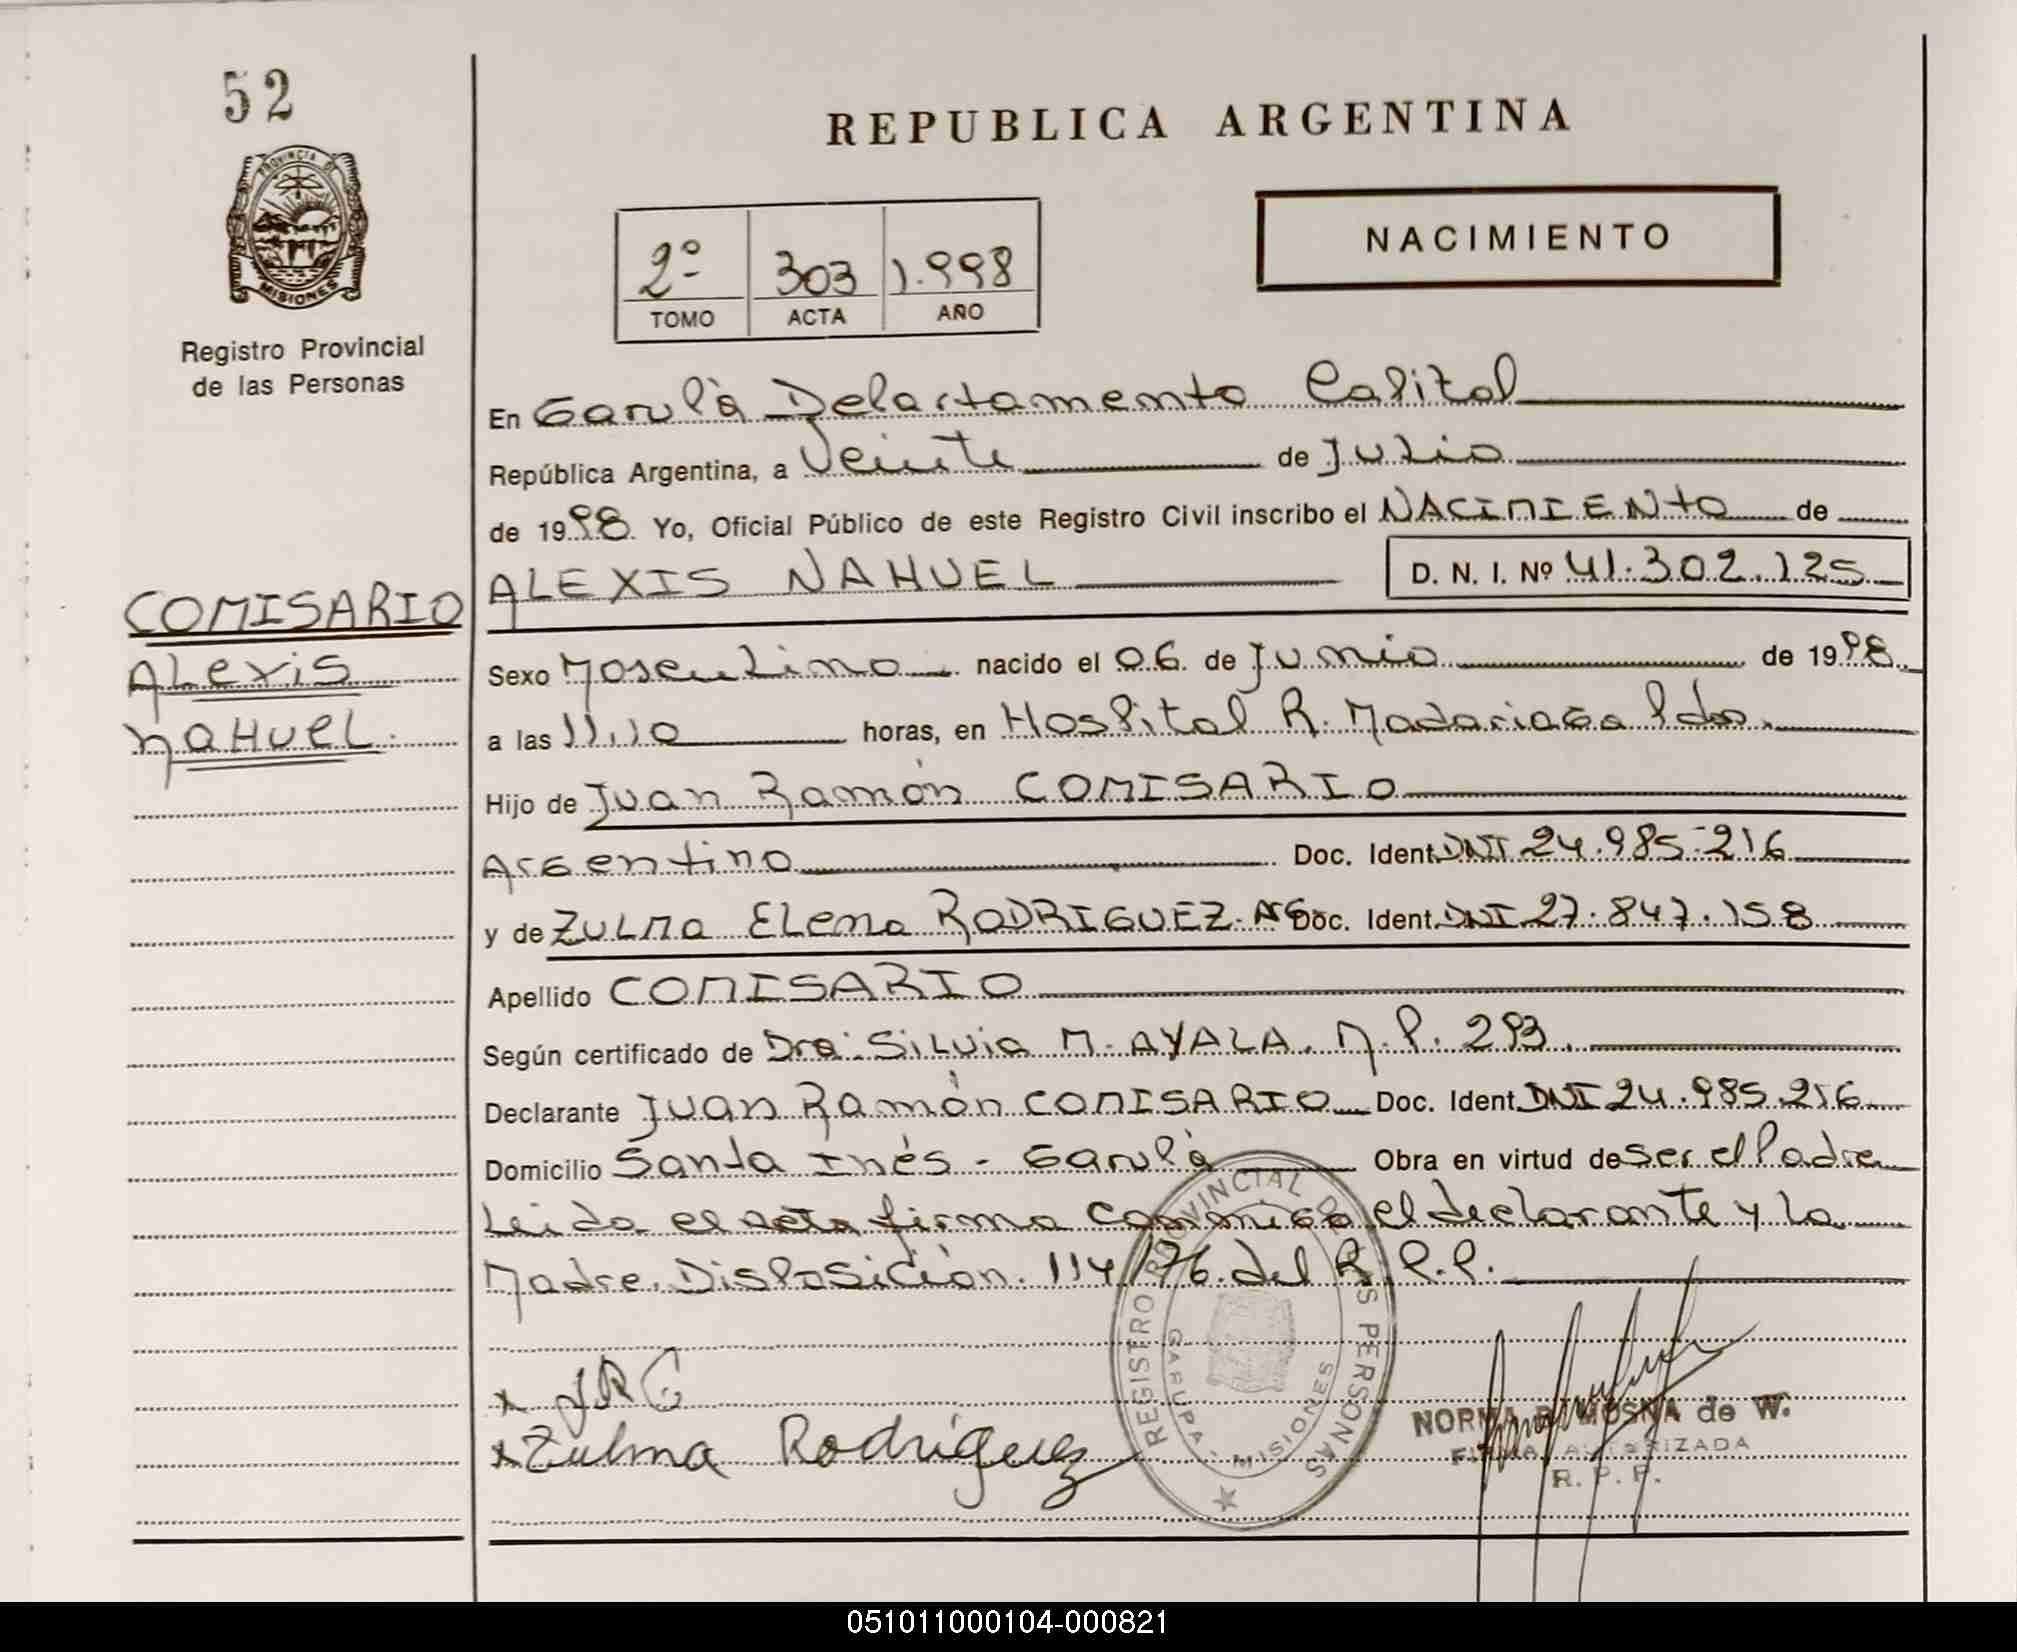 52
PROVINCIA DE
MISIONES
Registro Provincial
de las Personas
COMISARIO
Alexis
NaHuel.
REPUBLICA ARGENTINA
NACIMIENTO
2º 303 1.998
TOMO ACTA AÑO
En Garupá Departamento Capital
República Argentina, a Veinte de Julio
de 1998 Yo, Oficial Público de este Registro Civil inscribo el NACIMIENTO de
ALEXIS NAHUEL D. N. I. Nº 41.302.125
Sexo Masculino nacido el 06 de Junio de 1998
a las 11,10 horas, en Hospital R. Madariaga Pdas.
Hijo de Juan Ramón COMISARIO
Argentino Doc. Ident. DNI 24.985.216
y de Zulma Elena RODRIGUEZ. Arg. Doc. Ident. DNI 27.847.158
Apellido COMISARIO
Según certificado de Dra. Silvia M. AYALA. M.P. 293.
Declarante Juan Ramón COMISARIO Doc. Ident. DNI 24.985.216
Domicilio Santa Inés - Garupá Obra en virtud de ser el Padre
Leida el acta firma conmigo el declarante y la
Madre. Disposición. 114/76. del R.P.P.
x JRC
x Zulma Rodríguez
REGISTRO PROVINCIAL DE LAS PERSONAS
GARUPA - MISIONES
NORMA B. MOSNA de W.
FIRMA AUTORIZADA
R. P. P.
051011000104-000821